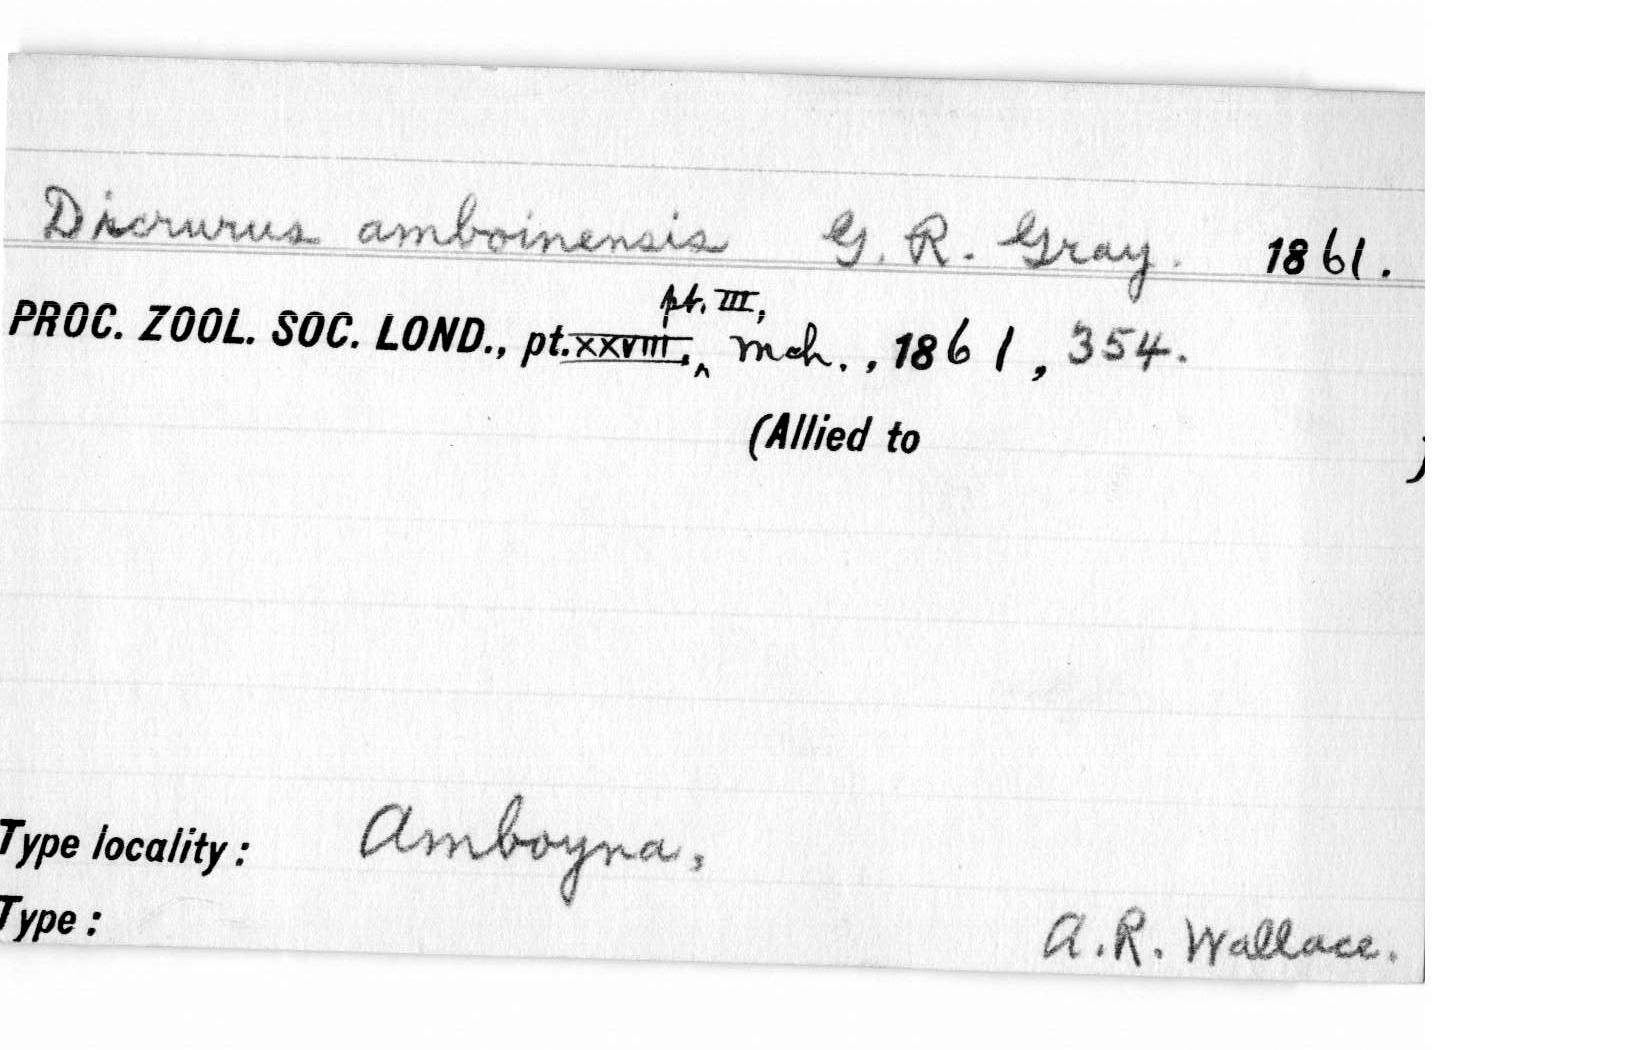 Dicrurus amboinensis G. R. Gray. 1861.
pt. III,
PROC. ZOOL. SOC. LOND., pt. XXVIII, ‸ Mch., 1861, 354.
(Allied to )
Type locality: Amboyna,
Type:
A. R. Wallace.